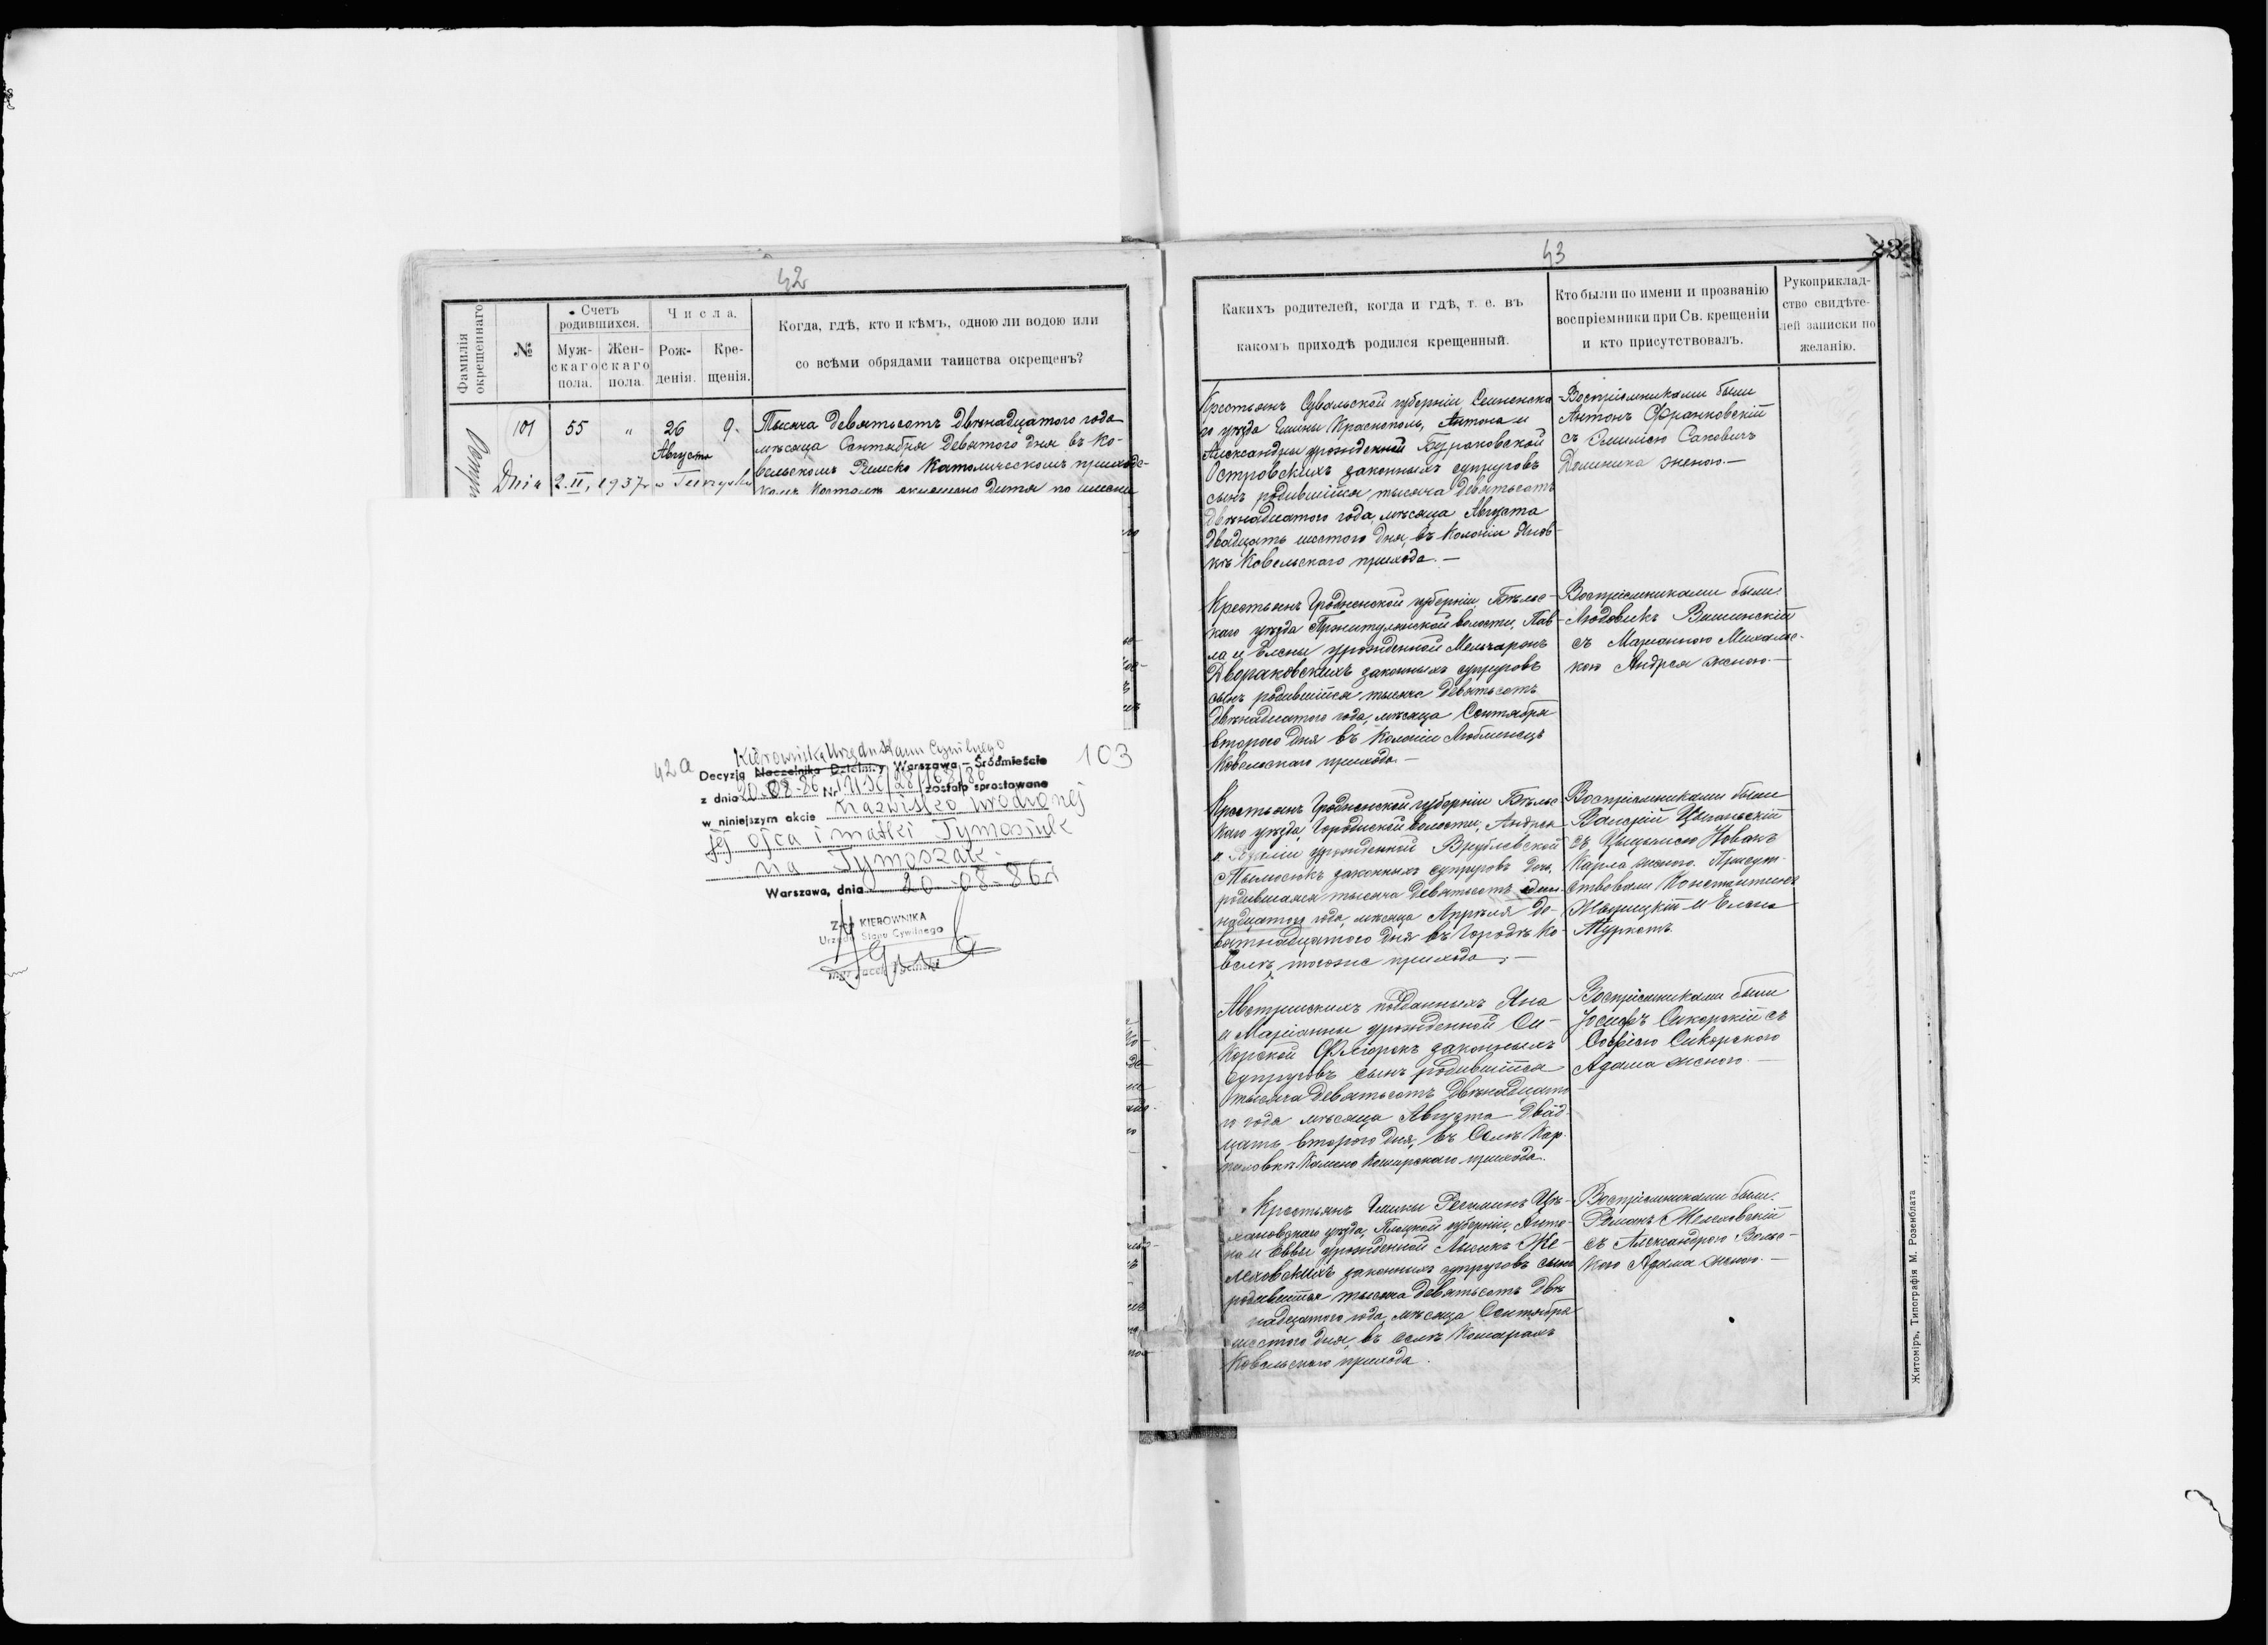 42
Фамилія
окрещеннаго
№
Счетъ
родившихся.
Муж-
скаго
пола.
Жен-
скаго
пола.
Числа.
Рож-
денія.
Кре-
щенія.
Когда, гдѣ, кто и кѣмъ, одною ли водою или
со всѣми обрядами таинства окрещенъ?
101
55
"
26
Августа
9.
Тысяча девятьсотъ двѣнадцатого года
мѣсяца Сентября девятого дня въ Ко-
вельскомъ Римско Католическомъ приход-
Dnia 2.II, 1937 r w
скомъ Костелѣ окрещено дитя по имени
42a
103
Kierownika Urzędu Stanu Cywilnego
Decyzją Naczelnika Dzielnicy Warszawa – Śródmieście
z dnia 20-08-86 Nr zostało sprostowano
w niniejszym akcie nazwisko urodzonej
jej ojca i matki Tymosiuk
na Tymoszak.
Warszawa, dnia 20-08-86r
Z-ca KIEROWNIKA
Urzędu Stanu Cywilnego
mgr Jacek
43
43
Какихъ родителей, когда и гдѣ, т. е. въ
какомъ приходѣ родился крещенный.
Кто были по имени и прозванію
воспріемники при Св. крещеніи
и кто присутствовалъ.
Рукоприклад-
ство свидѣте-
лей записки по
желанію.
Крестьянъ Сувальской губерніи Сейненска-
го уѣзда Гмины Краснополь, Антона и
Александры урожденной Бураковской
Островскихъ законныхъ супруговъ
сынъ родившійся тысяча девятьсотъ
двѣнадцатого года, мѣсяца Августа
двадцать шестого дня, въ Колоніи Янов-
кѣ Ковельскаго прихода.—
Воспріемниками были
Антонъ Франковскій
съ Эмилією Саковичъ
Доминика женою.—
Крестьянъ Гродненской губерніи, Бѣльс-
каго уѣзда волости, Пав-
ла и Елены урожденной Мельчаронъ
Двораковскихъ законныхъ супруговъ
сынъ родившійся тысяча девятьсотъ
двѣнадцатого года, мѣсяца Сентября
второго дня въ Колоніи Любленецъ
Ковельскаго прихода.—
Воспріемниками были
Людовикъ Вишинскій
съ Маріанною Михальс-
кою Андрея женою.—
Крестьянъ Гродненской губерніи Бѣльс-
каго уѣзда, Городиской волости, Андрея
и урожденной Врублевской
Тымосюкъ законныхъ супруговъ дочь,
родившаяся тысяча девятьсотъ один-
надцатого года, мѣсяца Апрѣля де-
вятнадцатого дня въ Городѣ Ко-
велѣ, тогоже прихода.—
Воспріемниками были
Валерій Цыганьскій
съ Новакъ
Карла женою. Присут-
ствовали Константинъ
и Елена
Австрійскихъ подданныхъ Яна
и Маріанны урожденной Си-
корской Флюрекъ законныхъ
супруговъ сынъ родившійся
тысяча девятьсотъ двѣнадцато-
го года мѣсяца Августа двад-
цать второго дня, въ Селѣ Кар-
пиловкѣ Камено Коширскаго прихода.
Воспріемниками были
Іосифъ Сикорскій съ
Софією Сикорского
Адама женою.—
Крестьянъ Гмины Региминъ Цѣ-
хановскаго уѣзда, Плоцкой губерніи, Анто-
на и Еввы урожденной Лысикъ Же-
леховскихъ законныхъ супруговъ сынъ
родившійся тысяча девятьсотъ двѣ
надцатого года, мѣсяца Сентября
шестого дня, въ селѣ Кошарахъ
Ковельскаго прихода.
Воспріемниками были
Романъ Желеховскій
съ Александрою Вольс-
кою Адама женою.—
Житоміръ, Типографія М. Розенблата